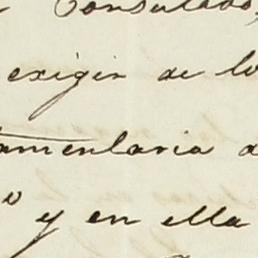 Consulado,
exigir de lo
amentaria a
o y en ella